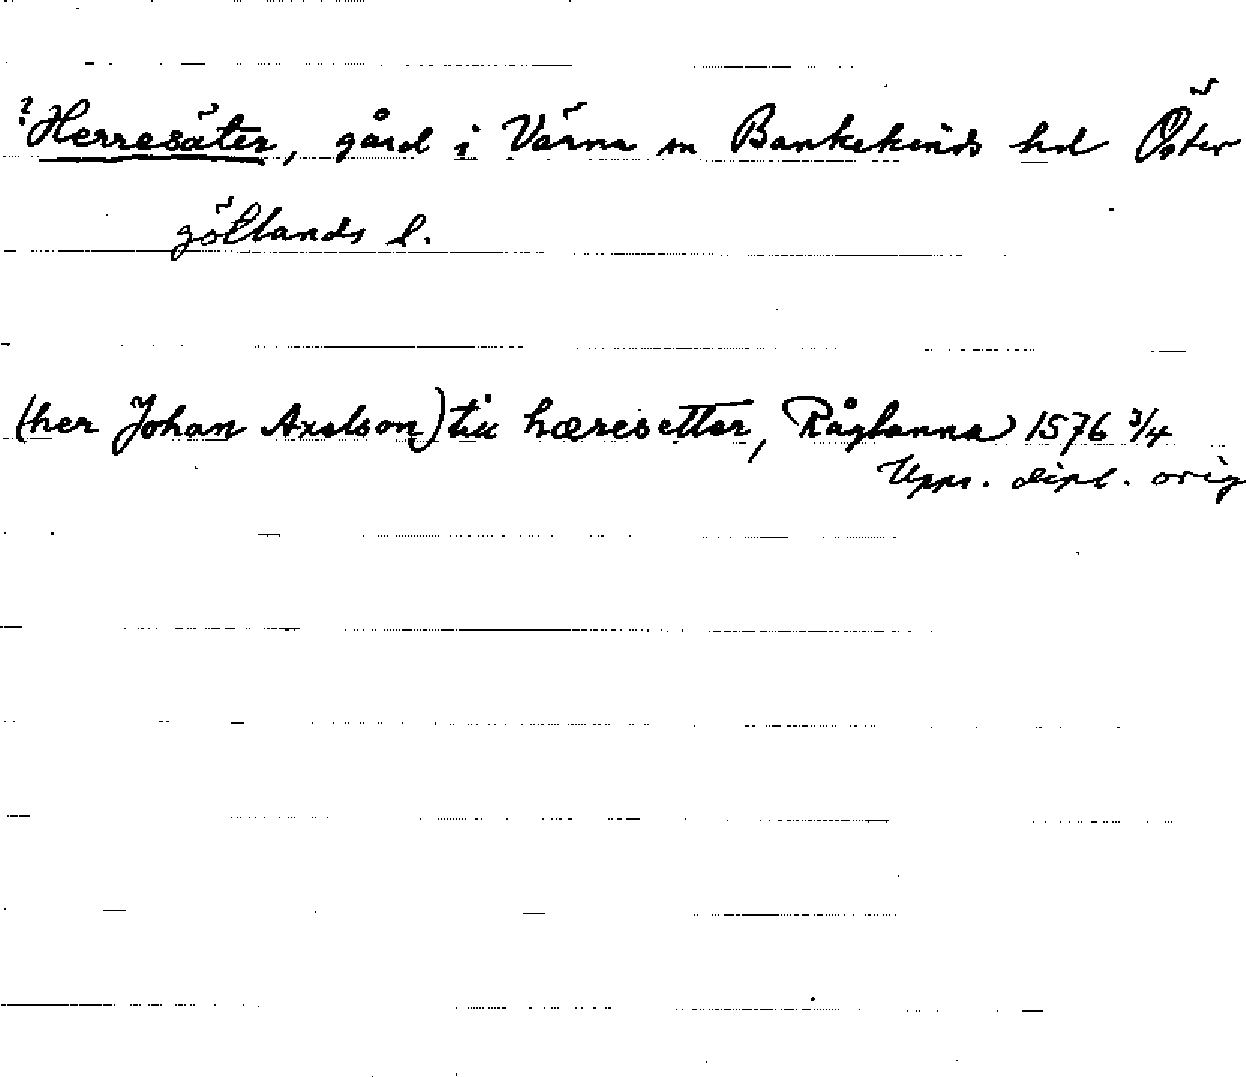 ? Herresäter, gård i Värna sn Bankekinds hd Öster
götlands l.
(her Johan Axelson) till hæresetter, Råglanna 1576 3/4
Upps. dipl. orig